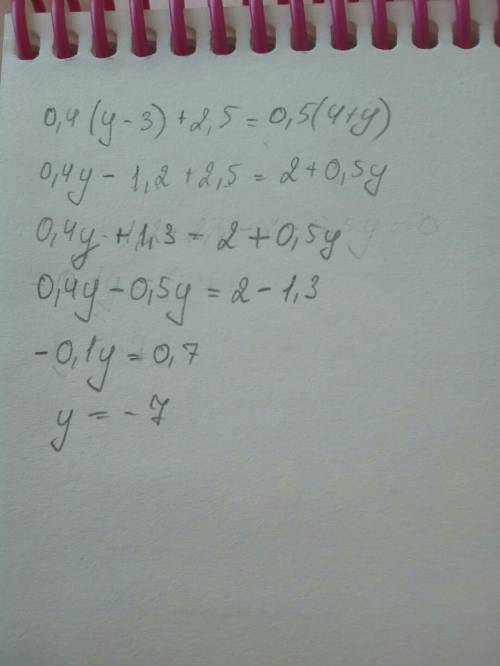 0,4(y-3)+2,5=0,5(4+y)
0,4y-1,2+2,5=2+0,5y
0,4y+1,3=2+0,5y
0,4y-0,5y=2-1,3
-0,1y=0,7
y=-7